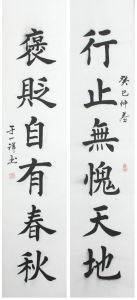 行止無愧天地
癸巳仲春
褒貶自有春秋